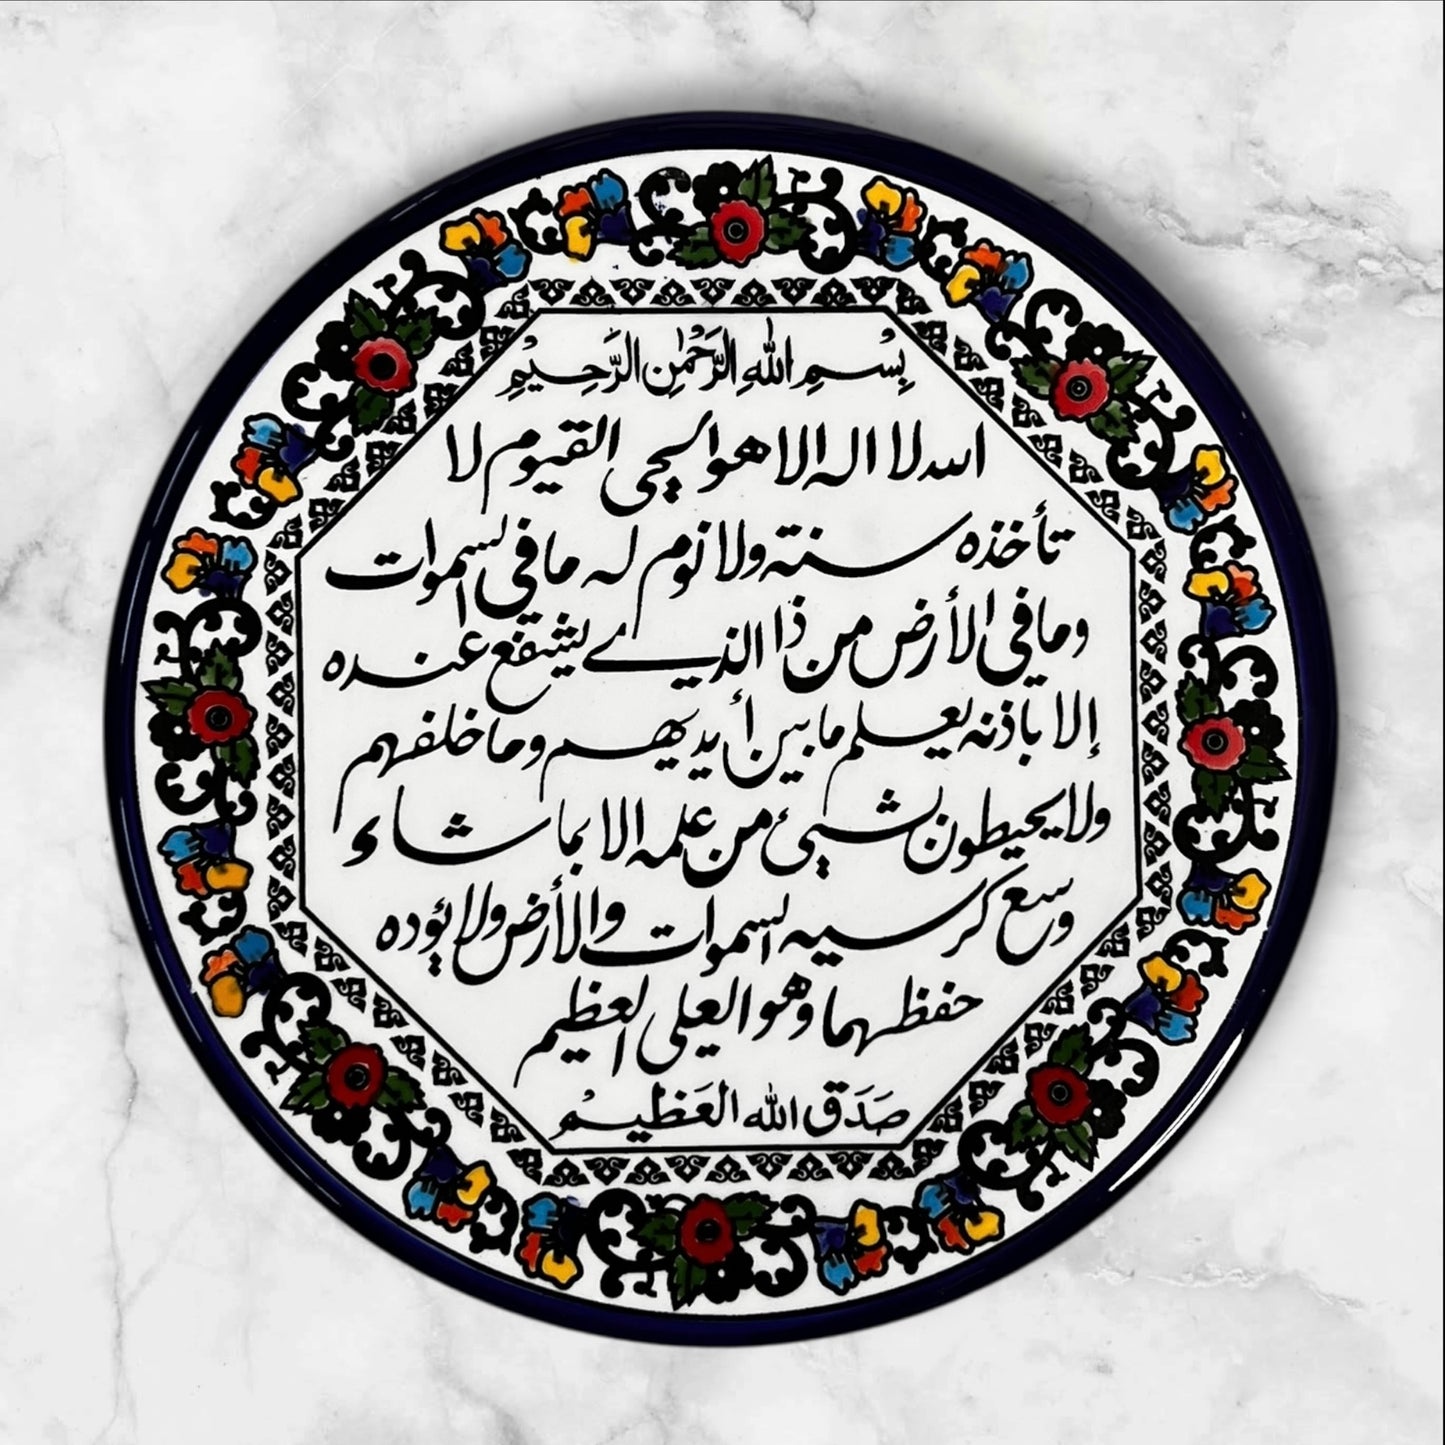 بِسْمِ اللهِ الرَّحْمٰنِ الرَّحِيْمِ
الله لا اله الا هو الحي القيوم لا
تأخذه سنة ولا نوم له ما في السموات
وما في الأرض من ذا الذي يشفع عنده
إلا باذنه يعلم ما بين أيديهم وما خلفهم
ولا يحيطون بشيئ من علمه الا بما شاء
وسع كرسيه السموات والأرض ولا يؤده
حفظهما وهو العلي العظيم
صَدَقَ الله العَظِيْم